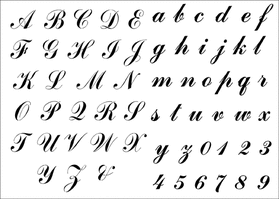 A B C D E
F G H I J
K L M N
O P Q R S
T U V W X
Y Z &
a b c d e f
g h i j k l
m n o p q r
s t u v w x
y z 0 1 2 3
4 5 6 7 8 9